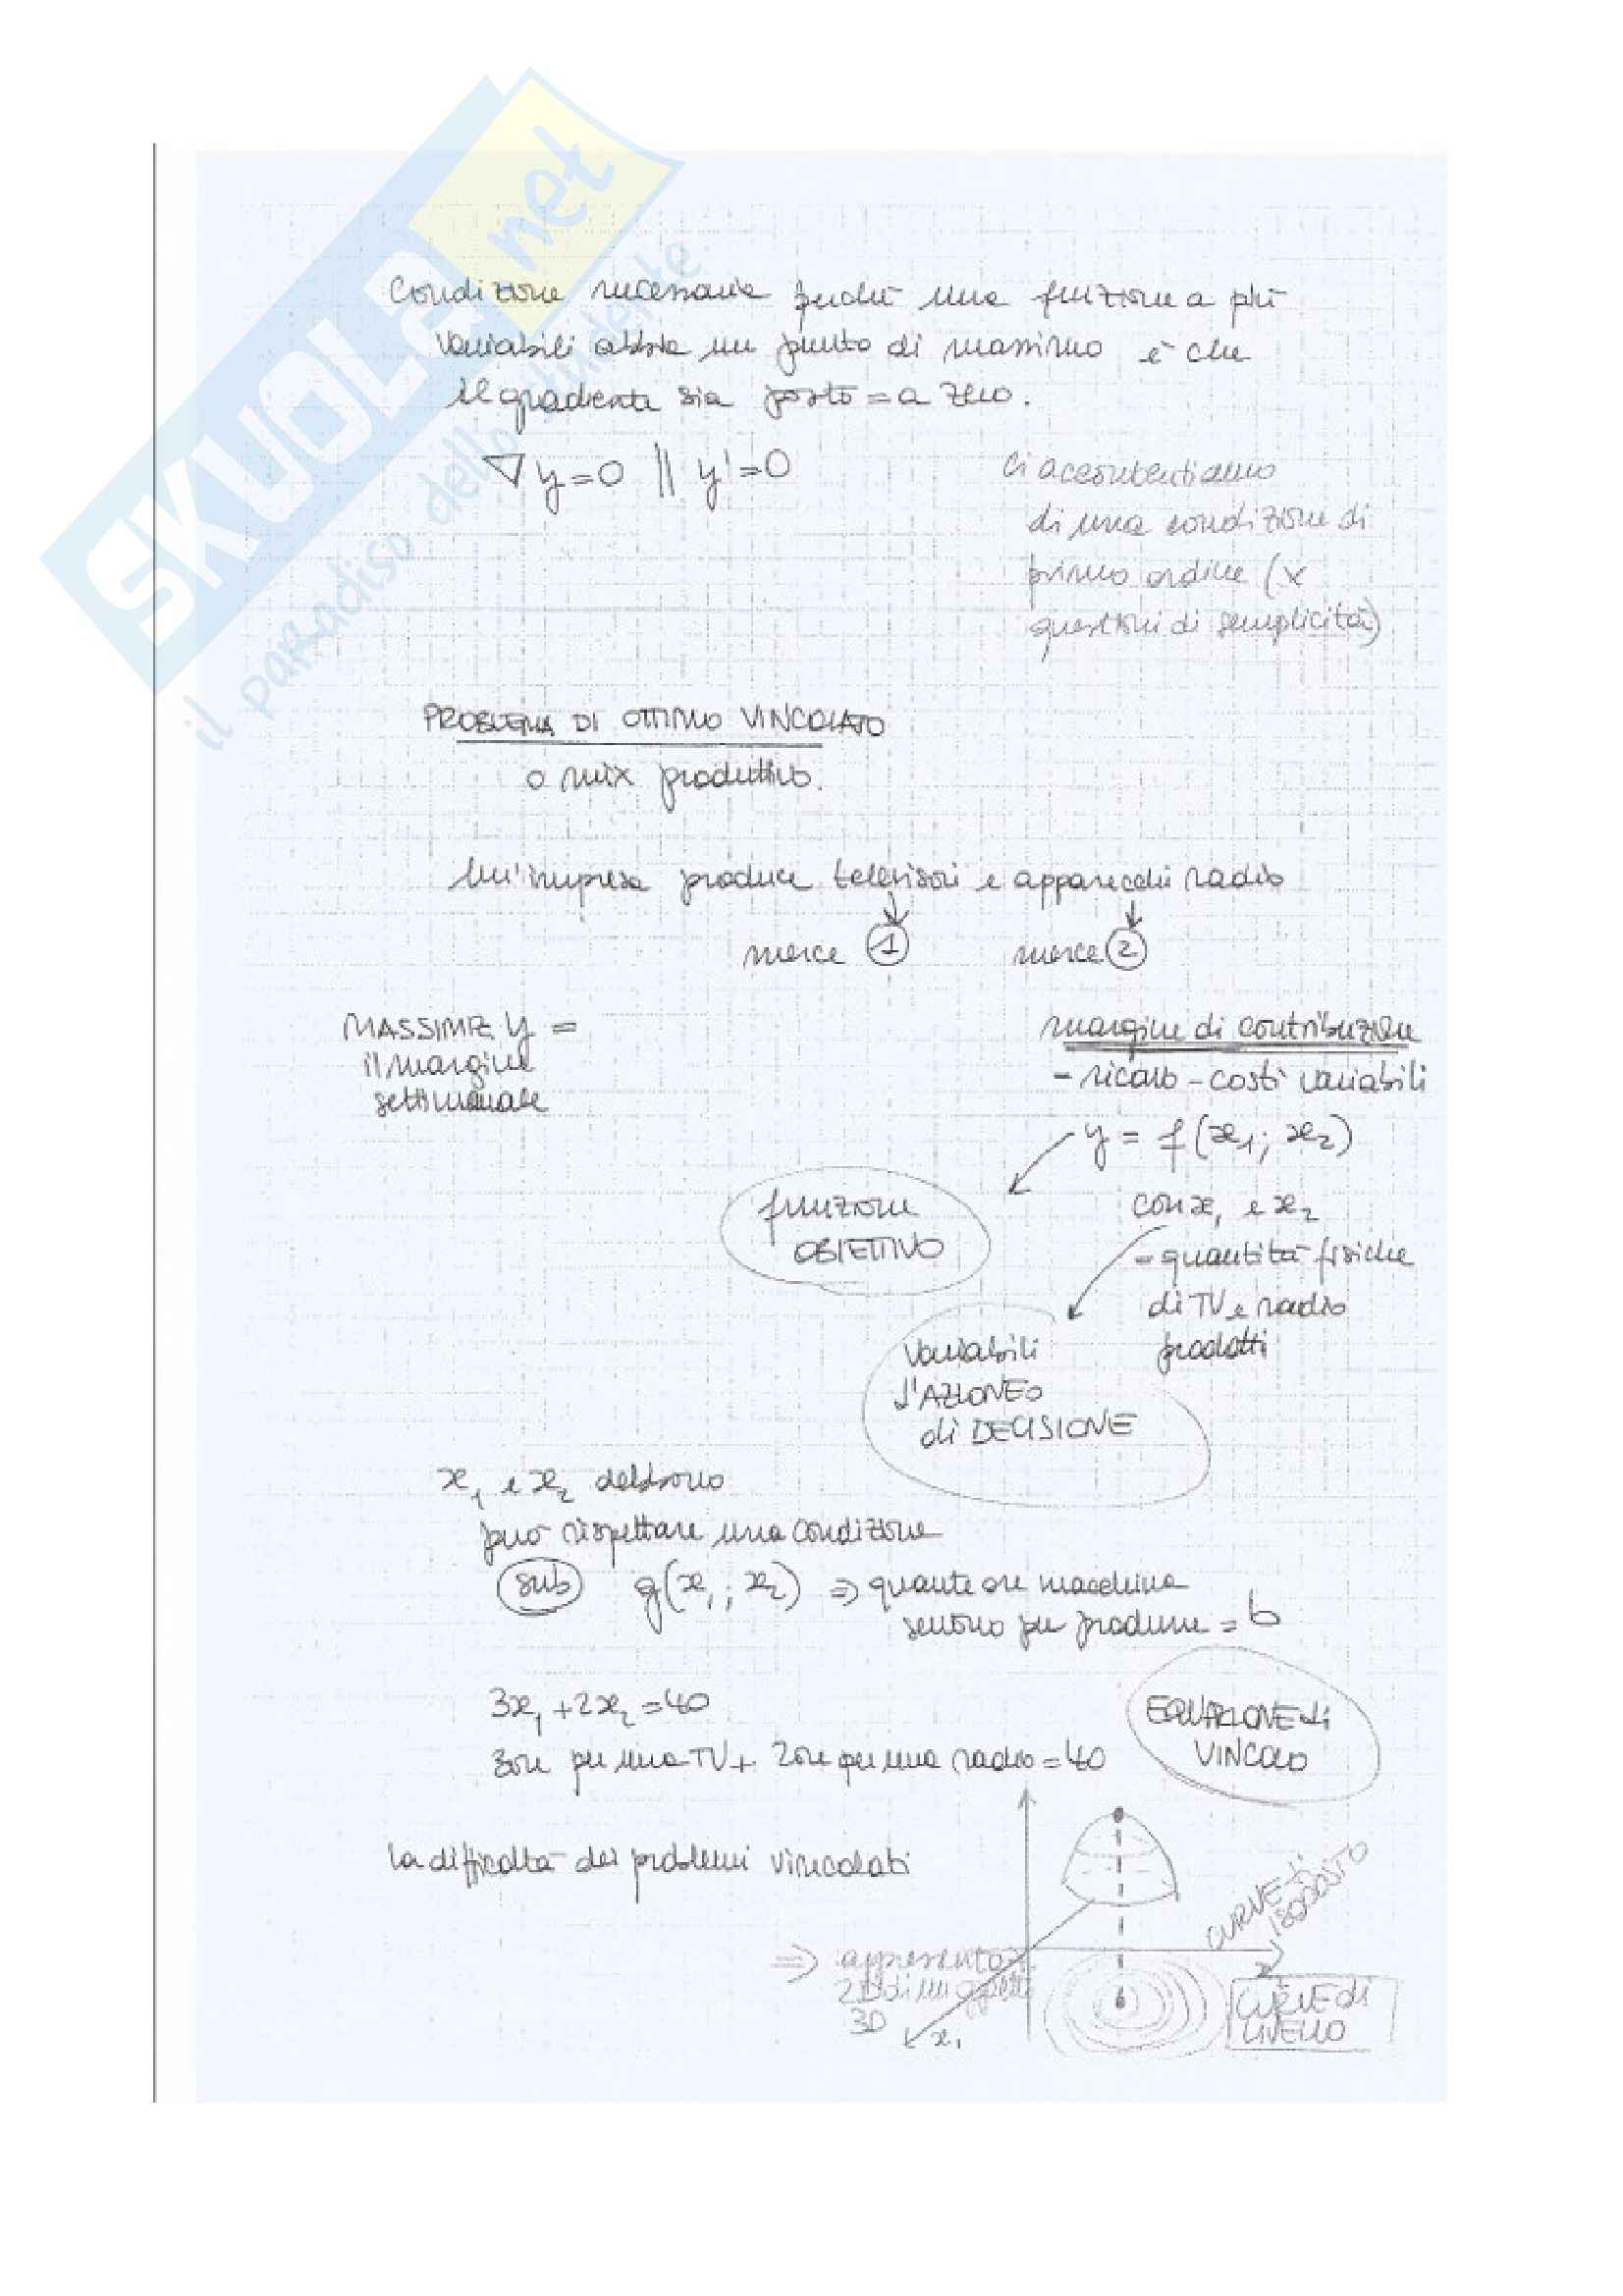 SKUOLA.net
il paradiso dello studente
Condizione necessaria perché una funzione a più
variabili abbia un punto di massimo è che
il gradiente sia posto = a zero.
∇y=0 || y'=0
Ci accontentiamo
di una condizione di
primo ordine (x
questioni di semplicità)
PROBLEMA DI OTTIMO VINCOLATO
o mix produttivo.
Un'impresa produce televisori e apparecchi radio
merce ① merce ②
MASSIMIZ y =
il margine
settimanale
margine di contribuzione
- ricavo - costi variabili
y = f(x₁; x₂)
funzione
OBIETTIVO
con x₁ e x₂
= quantità fisiche
di TV e radio
prodotti
variabili
d'AZIONE o
di DECISIONE
x₁ e x₂ debbono
però rispettare una condizione
sub g(x₁; x₂) ⇒ quante ore macchina
servono per produrre = b
3x₁ + 2x₂ = 40
3 ore per una TV + 2 ore per una radio = 40
EQUAZIONE di
VINCOLO
la difficoltà dei problemi vincolati
CURVE di
ISOCOSTO
⇒
2D di un
3D
x₁
CURVE di
LIVELLO